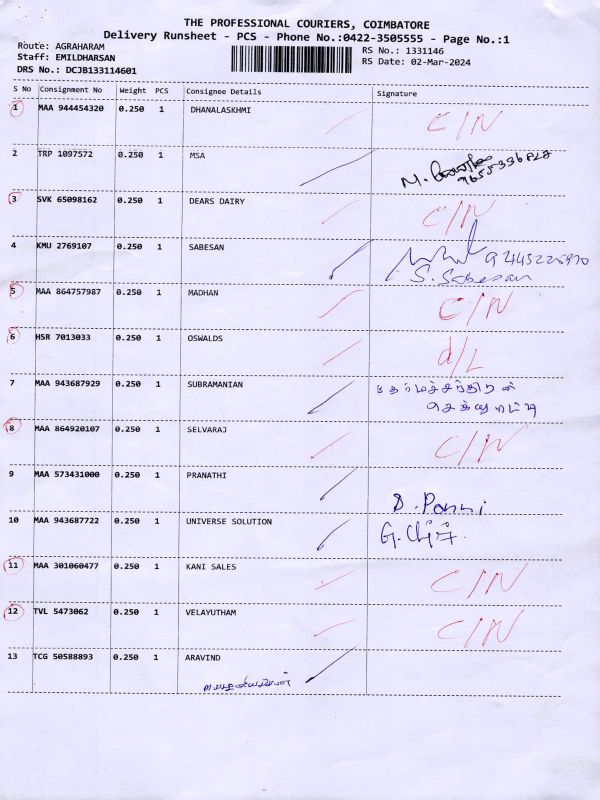 THE PROFESSIONAL COURIERS, COIMBATORE
Delivery Runsheet - PCS - Phone No.:0422-3505555 - Page No.:1
Route: AGRAHARAM
Staff: EMILDHARSAN
DRS No.: DCJB133114601
RS No.: 1331146
RS Date: 02-Mar-2024
S No Consignment No Weight PCS Consignee Details Signature
1 MAA 944454320 0.250 1 DHANALASKHMI C/N
2 TRP 1097572 0.250 1 MSA M.
3 SVK 65098162 0.250 1 DEARS DAIRY C/N
4 KMU 2769107 0.250 1 SABESAN
S. Sabesan
5 MAA 864757987 0.250 1 MADHAN C/N
6 HSR 7013033 0.250 1 OSWALDS d/L
7 MAA 943687929 0.250 1 SUBRAMANIAN
8 MAA 864920107 0.250 1 SELVARAJ C/N
9 MAA 573431000 0.250 1 PRANATHI
10 MAA 943687722 0.250 1 UNIVERSE SOLUTION
11 MAA 301060477 0.250 1 KANI SALES C/N
12 TVL 5473062 0.250 1 VELAYUTHAM C/N
13 TCG 50588893 0.250 1 ARAVIND